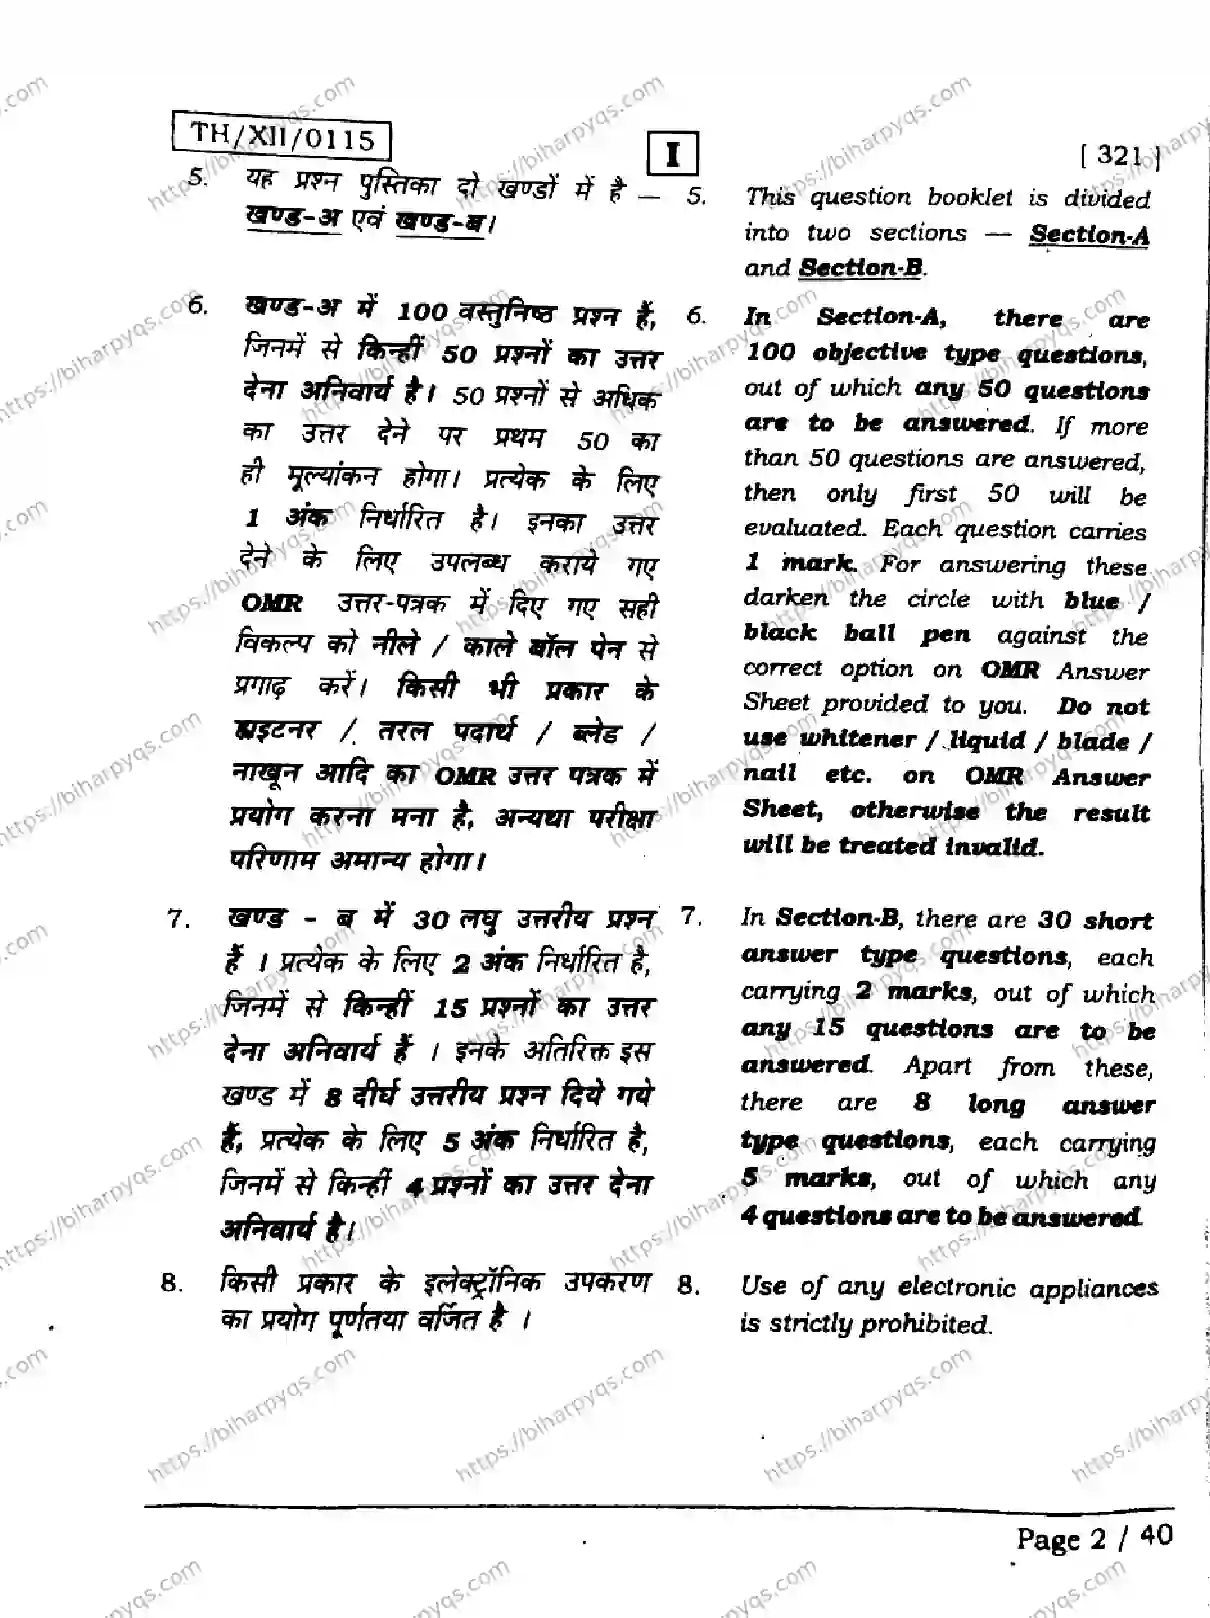 TH/XII/0115
I
[ 321 ]
5. यह प्रश्न पुस्तिका दो खण्डों में है —
खण्ड-अ एवं खण्ड-ब।
6. खण्ड-अ में 100 वस्तुनिष्ठ प्रश्न हैं,
जिनमें से किन्हीं 50 प्रश्नों का उत्तर
देना अनिवार्य है। 50 प्रश्नों से अधिक
का उत्तर देने पर प्रथम 50 का
ही मूल्यांकन होगा। प्रत्येक के लिए
1 अंक निर्धारित है। इनका उत्तर
देने के लिए उपलब्ध कराये गए
OMR उत्तर-पत्रक में दिए गए सही
विकल्प को नीले / काले बॉल पेन से
प्रगाढ़ करें। किसी भी प्रकार के
ह्वाइटनर / तरल पदार्थ / ब्लेड /
नाखून आदि का OMR उत्तर पत्रक में
प्रयोग करना मना है, अन्यथा परीक्षा
परिणाम अमान्य होगा।
7. खण्ड - ब में 30 लघु उत्तरीय प्रश्न
हैं । प्रत्येक के लिए 2 अंक निर्धारित है,
जिनमें से किन्हीं 15 प्रश्नों का उत्तर
देना अनिवार्य हैं । इनके अतिरिक्त इस
खण्ड में 8 दीर्घ उत्तरीय प्रश्न दिये गये
हैं, प्रत्येक के लिए 5 अंक निर्धारित है,
जिनमें से किन्हीं 4 प्रश्नों का उत्तर देना
अनिवार्य है।
8. किसी प्रकार के इलेक्ट्रॉनिक उपकरण
का प्रयोग पूर्णतया वर्जित है ।
5. This question booklet is divided
into two sections — Section-A
and Section-B.
6. In Section-A, there are
100 objective type questions,
out of which any 50 questions
are to be answered. If more
than 50 questions are answered,
then only first 50 will be
evaluated. Each question carries
1 mark. For answering these
darken the circle with blue /
black ball pen against the
correct option on OMR Answer
Sheet provided to you. Do not
use whitener / liquid / blade /
nail etc. on OMR Answer
Sheet, otherwise the result
will be treated invalid.
7. In Section-B, there are 30 short
answer type questions, each
carrying 2 marks, out of which
any 15 questions are to be
answered. Apart from these,
there are 8 long answer
type questions, each carrying
5 marks, out of which any
4 questions are to be answered.
8. Use of any electronic appliances
is strictly prohibited.
Page 2 / 40
https://biharpyqs.com